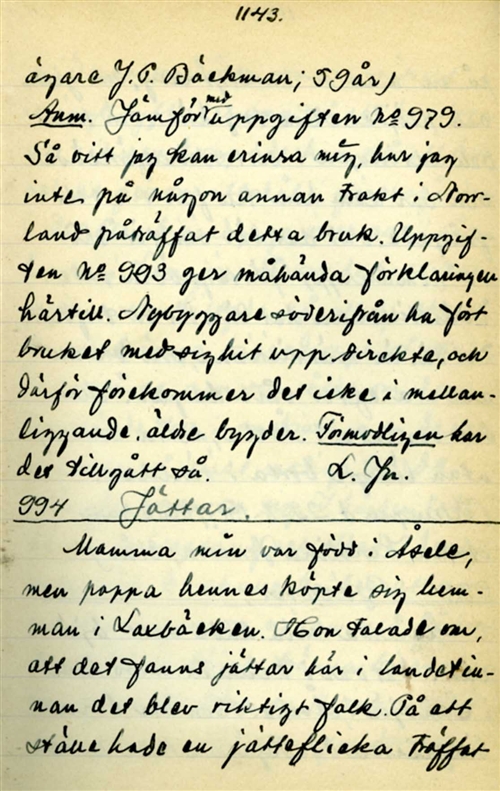 1143.
ägare J. P. Bäckman; 59 år)
Anm. Jämför med uppgiften No 979.
Så vitt jag kan erinra mig, har jag
inte på någon annan trakt i Norr-
land påträffat detta bruk. Uppgif-
ten No 993 ger måhända förklaringen
härtill. Nybyggare söderifrån ha fört
bruket med sig hit upp direkte, och
därför förekommer det icke i mellan-
liggande, äldre bygder. Förmodligen har
det tillgått så. L. Jn.
994 Jättar.
Mamma min var född i Åsele,
men pappa hennes köpte sig hem-
man i Laxbäcken. Hon talade om,
att det fanns jättar här i landet in-
nan det blev riktigt folk. På ett
ställe hade en jätteflicka träffat